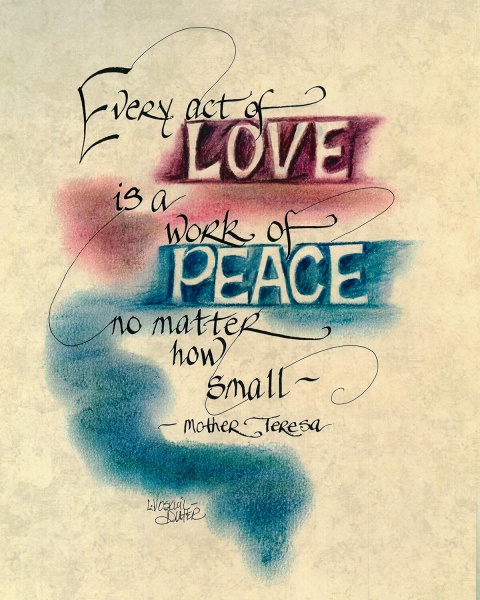 Every act of
LOVE
is a
work of
PEACE
no matter
how
small ~
~ Mother Teresa